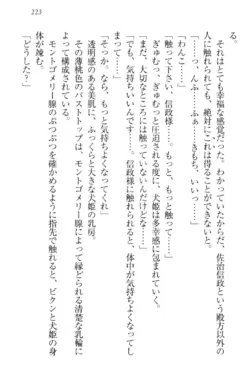 223
る。
それは、とても幸福な感覚だった。わかっていたからだ。佐治信政という殿方以外の
人に触れられても、絶対にこれは得ることができないと。
「……っ、んっ……いんっ……ふぁっ……きもち、いいっ……」
「わんこ……」
「信政様っ……もっと、もっと触って……」
ぎゅむっっ、ぎゅむっっと圧迫される度に、犬姫は多幸感に包まれていく。
「信政様に触れられると、体中が気持ちよくなってしまって……」
「まだ、大切なところには触っていないんだけどな」
「でも、気持ちいいんです……信政様に触れられると、体中が気持ちよくなってし
まって……」
「そっか。なら、もっと気持ちよくなってくれ」
透明感のある美肌に、ふっくらと大きな犬姫の乳房。
その薄桃色のバストトップは、モントゴメリー腺によって縁どられる清楚な乳輪に
よって構成されている。
モントゴメリー腺のぶつぶつを確かめるように指先で触れると、ビクンと犬姫の身
体が竦む。
「どうした?」